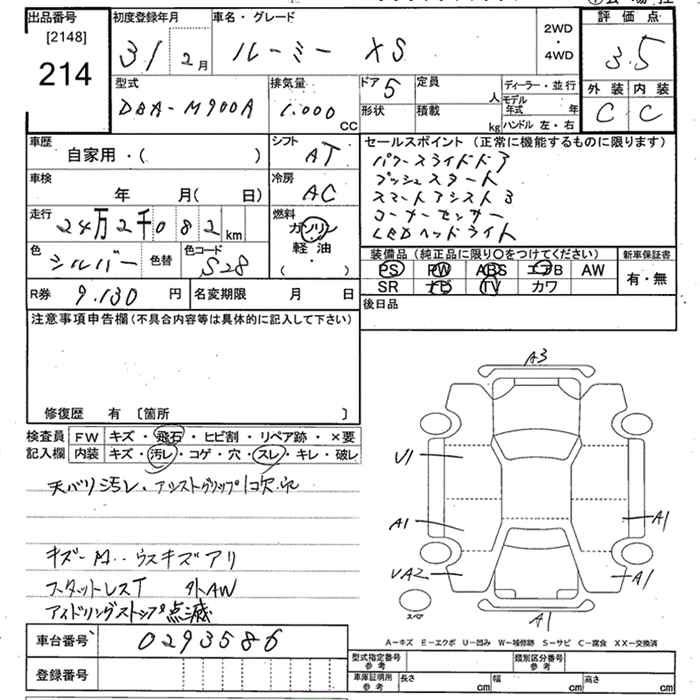 出品番号 初度登録年月 車名・グレード 2WD・4WD 評価点
[2148]
214 31 2月 ルーミー XS 3.5
型式 排気量 ドア 定員 ディーラー・並行 外装 内装
DBA-M900A 1.000 cc 5 人 モデル年式 年 C C
形状 積載 kg ハンドル 左・右
車歴 シフト セールスポイント (正常に機能するものに限ります)
自家用・( ) AT パワースライドドア
車検 冷房 プッシュスタート
年 月( 日) AC スマートアシスト3
走行 燃料 コーナーセンサー
24万2千082km ガソリン LEDヘッドライト
軽・油
( ・ )
色 シルバー 色替 色コード S28 装備品 (純正品に限り○をつけてください) 新車保証書
PS PW ABS エアB AW 有・無
R券 9.130 円 名変期限 月 日 SR ナビ TV カワ
注意事項申告欄 (不具合内容等は具体的に記入して下さい) 後日品
修復歴 有 〔箇所 〕
検査員 FW キズ・飛石・ヒビ割・リペア跡・×要
記入欄 内装 キズ・汚レ・コゲ・穴・スレ・キレ・破レ
天バリ汚レ・アシストグリップ1ヶ欠品
キズ ウスキズアリ
スタットレスT 外AW
アイドリングストップ点滅
A3
U1
A1 A1
UA2 A1
スペア A1
A-キズ E-エクボ U-凹み W-補修跡 S-サビ C-腐食 XX-交換済
車台番号 0293586
登録番号
型式指定番号 参考 類別区分番号 参考
車庫証明用 参考 長さ cm 幅 cm 高さ cm